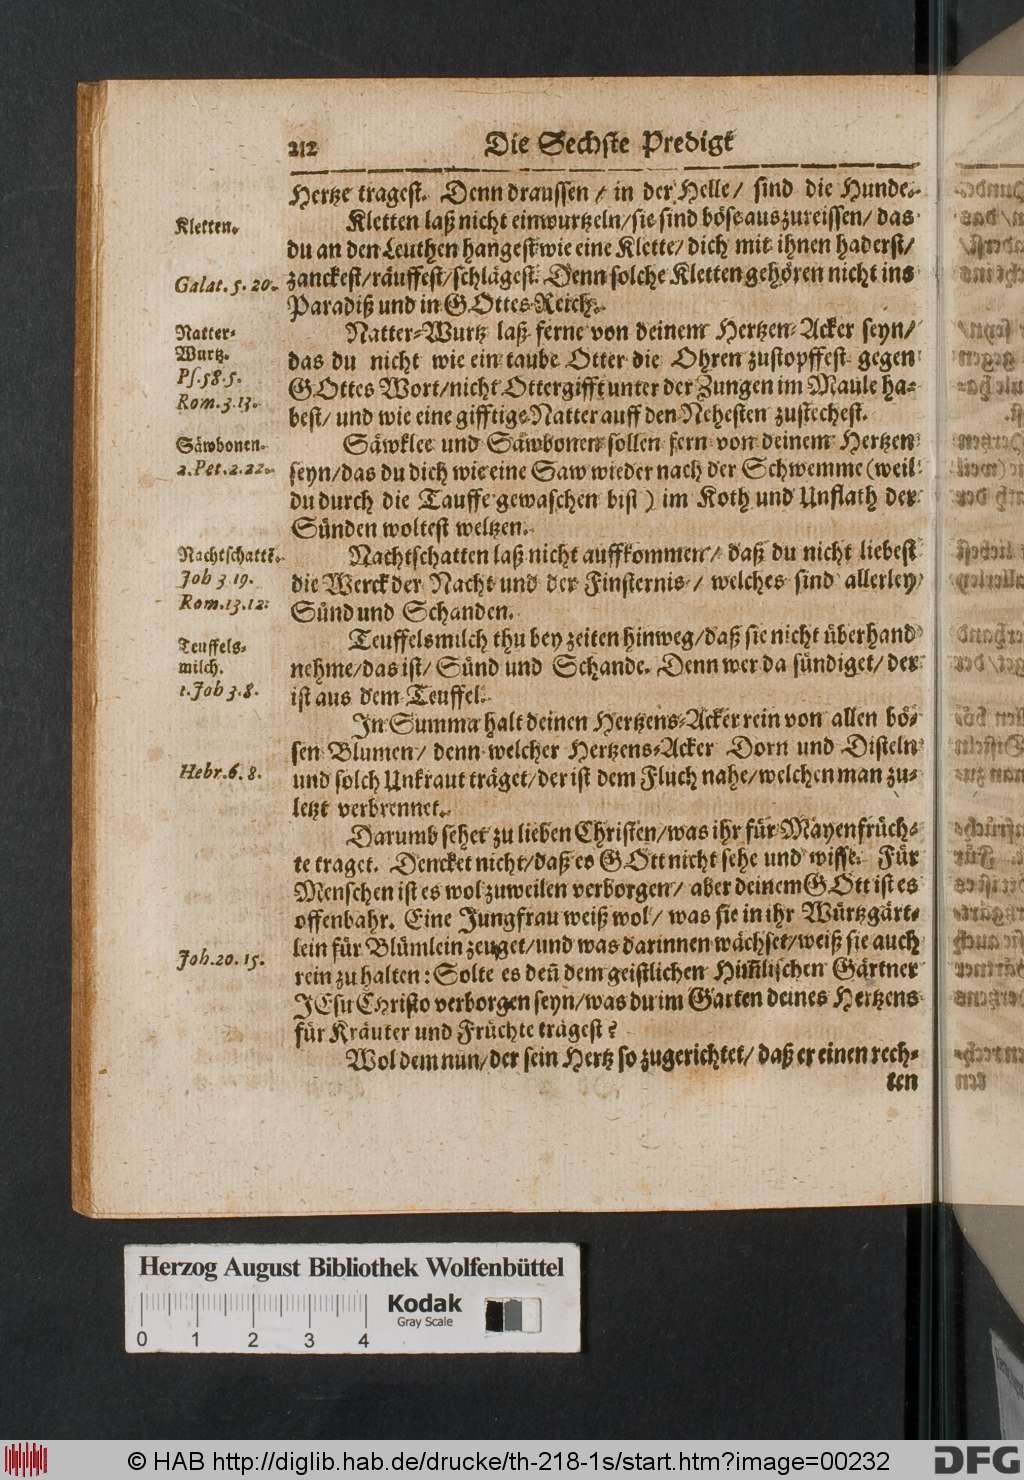 212 Die Sechste Predigt
Hertze tragest. Denn draussen / in der Helle / sind die Hunde.
Kletten. Kletten laß nicht einwurtzeln / sie sind böse auszureissen / das
du an den Leuthen hangest wie eine Klette / dich mit ihnen haderst /
Galat. 5. 20. zanckest / räuffest / schlägest. Denn solche Kletten gehören nicht ins
Paradiß und in GOttes Reich.
Natter- Natter-Wurtz laß ferne von deinem Hertzen-Acker seyn /
Wurtz. das du nicht wie ein taube Otter die Ohren zustopffest gegen
Ps. 58. 5. GOttes Wort / nicht Ottergifft unter der Zungen im Maule ha-
Rom. 3. 13. best / und wie eine gifftige Natter auff den Nehesten zustechest.
Säwbonen. Säwklee und Säwbonen sollen fern von deinem Hertzen
2. Pet. 2. 22. seyn / das du dich wie eine Saw wieder nach der Schwemme (weil
du durch die Tauffe gewaschen bist) im Koth und Unflath der
Sünden woltest weltzen.
Nachtschattē. Nachtschatten laß nicht auffkommen / daß du nicht liebest
Joh 3 19. die Werck der Nacht und der Finsternis / welches sind allerley
Rom. 13. 12. Sünd und Schanden.
Teuffels- Teuffelsmilch thu bey zeiten hinweg / daß sie nicht überhand
milch. nehme / das ist / Sünd und Schande. Denn wer da sündiget / der
1. Joh 3. 8. ist aus dem Teuffel.
In Summa halt deinen Hertzens-Acker rein von allen bö-
sen Blumen / denn welcher Hertzens-Acker Dorn und Disteln
Hebr. 6. 8. und solch Unkraut träget / der ist dem Fluch nahe / welchen man zu-
letzt verbrennet.
Darumb sehet zu lieben Christen / was ihr für Mayenfrüch-
te traget. Dencket nicht / daß es GOtt nicht sehe und wisse. Für
Menschen ist es wol zuweilen verborgen / aber deinem GOtt ist es
offenbahr. Eine Jungfrau weiß wol / was sie in ihr Würtzgärt-
lein für Blümlein zeuget / und was darinnen wächset / weiß sie auch
Joh. 20. 15. rein zu halten: Solte es deñ dem geistlichen Him̃lischen Gärtner
JEsu CHristo verborgen seyn / was du im Garten deines Hertzens
für Kräuter und Früchte trägest?
Wol dem nun / der sein Hertz so zugerichtet / daß er einen rech-
ten
Herzog August Bibliothek Wolfenbüttel
0 1 2 3 4
Kodak
Gray Scale
© HAB http://diglib.hab.de/drucke/th-218-1s/start.htm?image=00232
DFG